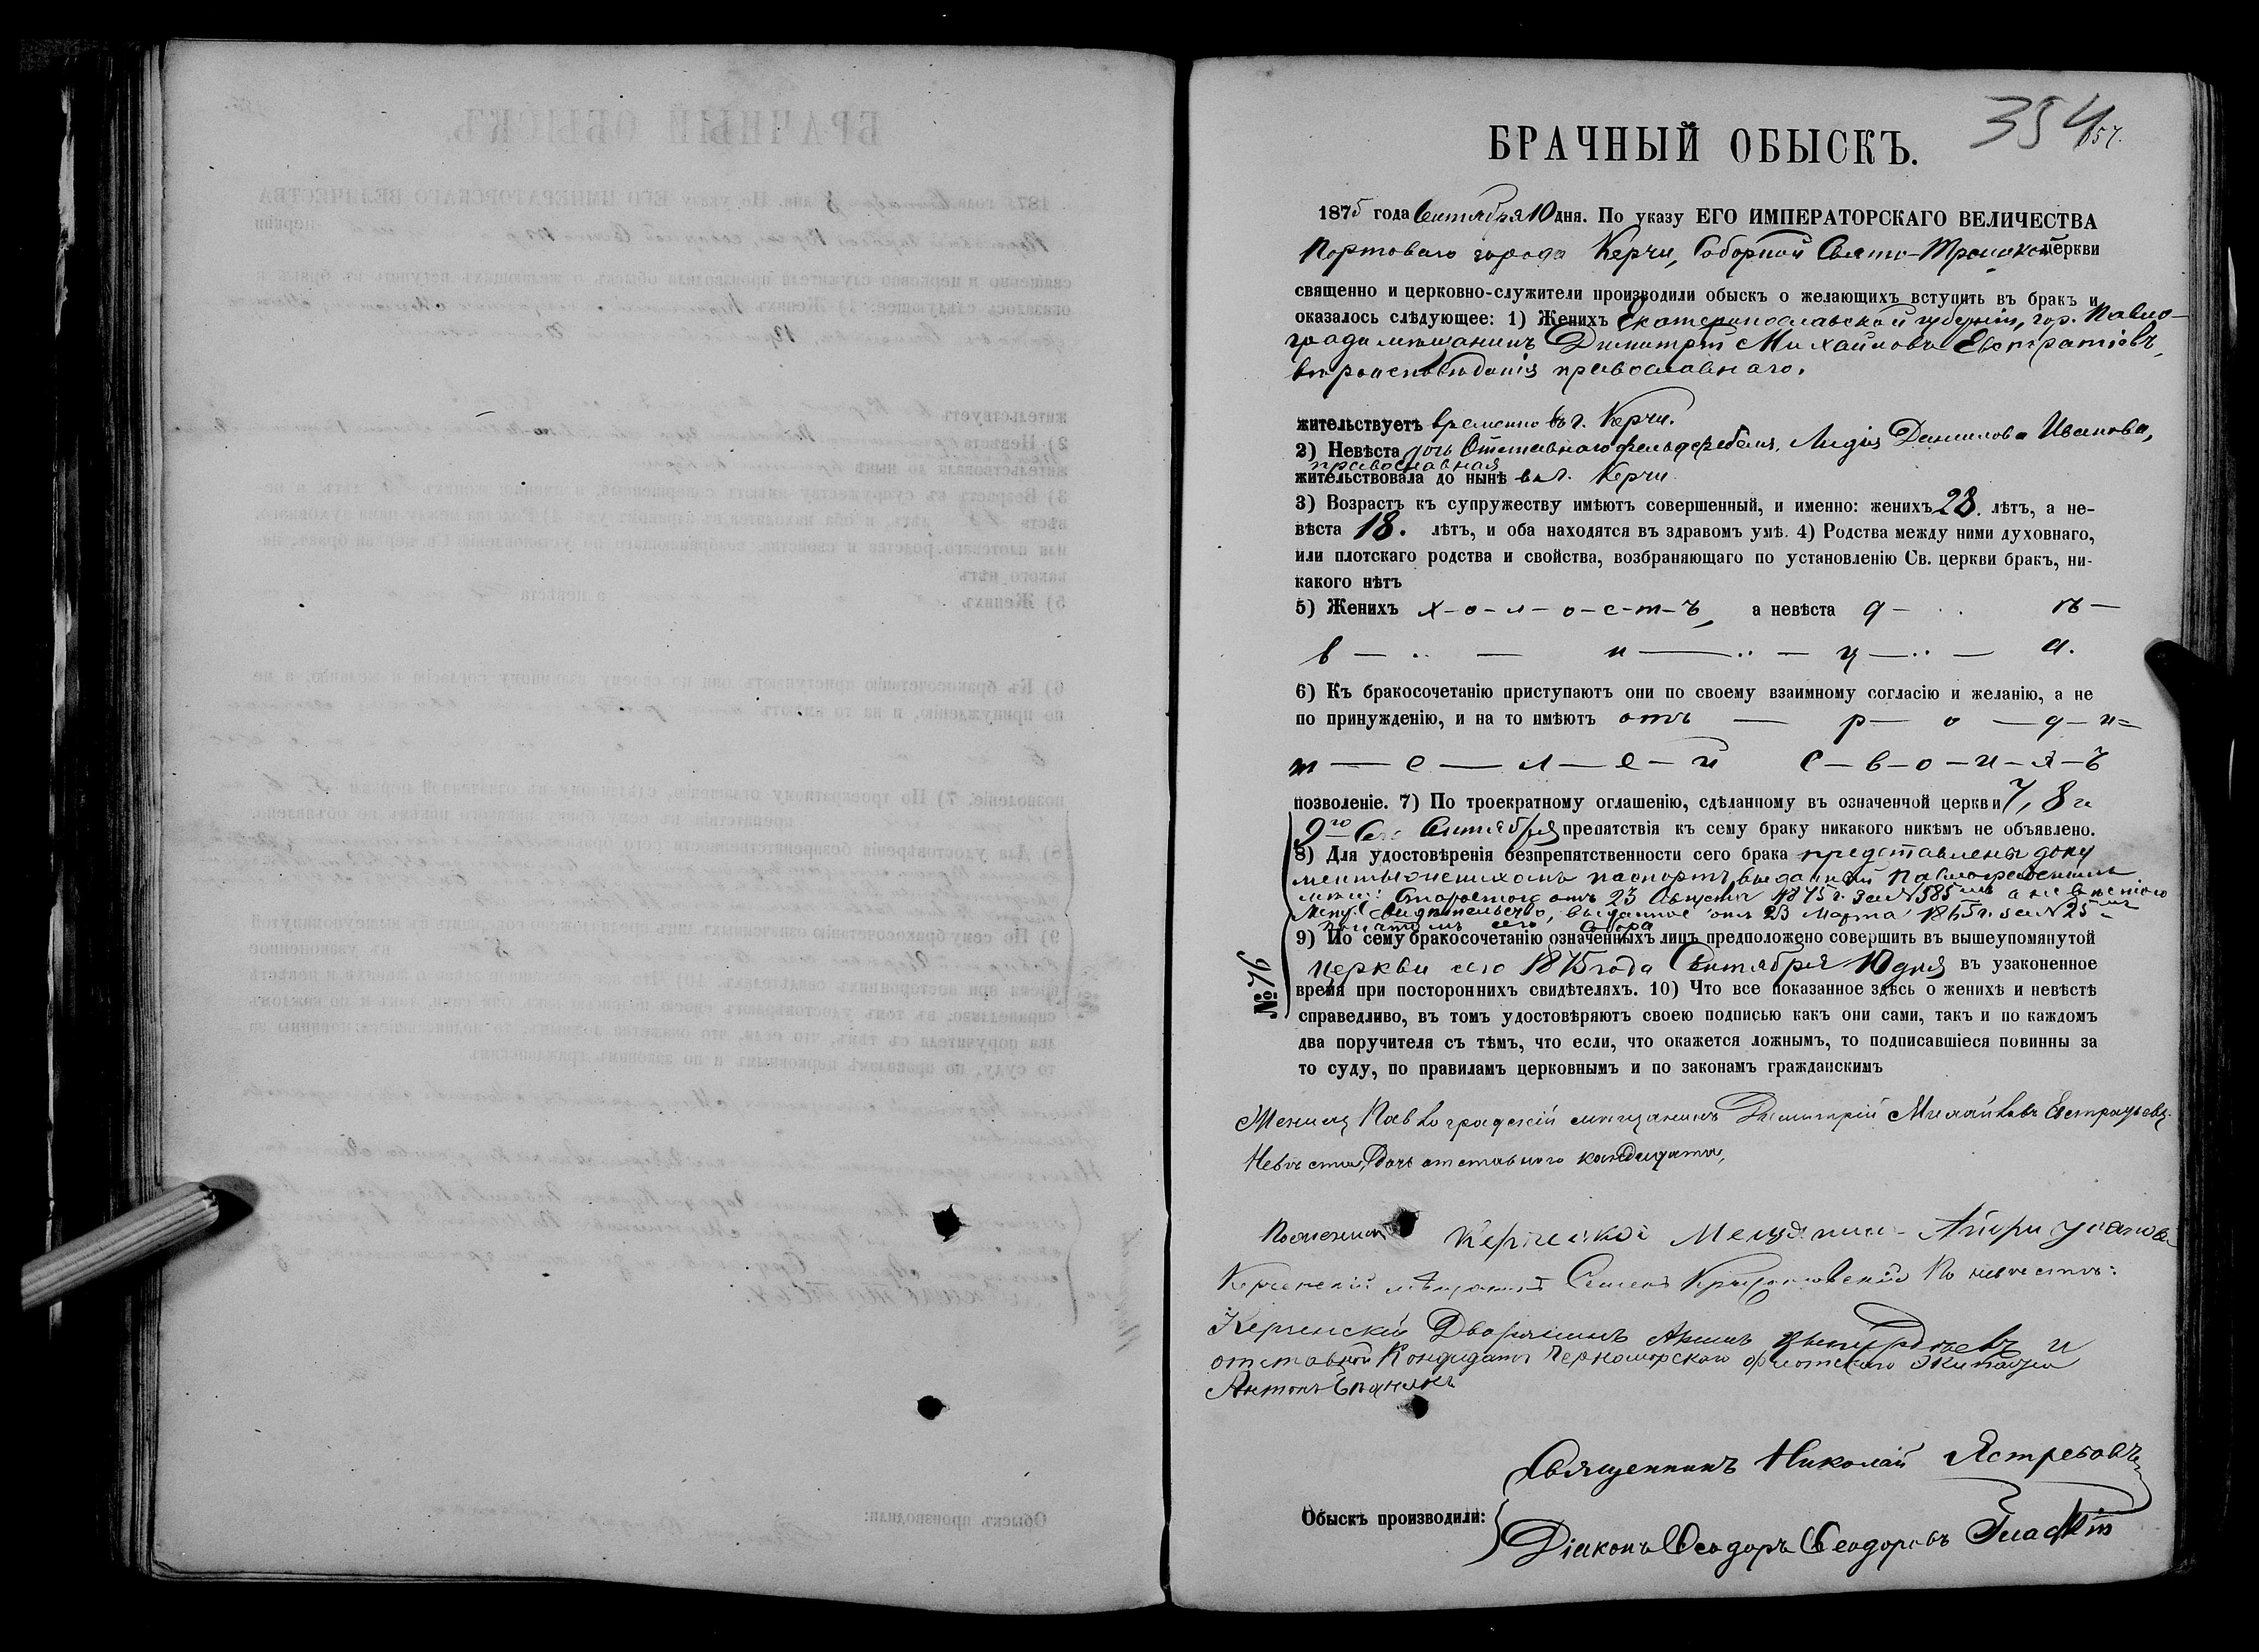 354
157.
БРАЧНЫЙ ОБЫСКЪ.
1875 года Сентября 10 дня. По указу ЕГО ИМПЕРАТОРСКАГО ВЕЛИЧЕСТВА
Портоваго города Керчи, Соборной Свято-Троицкой церкви
священно и церковно-служители производили обыскъ о желающихъ вступить въ бракъ и
оказалось слѣдующее: 1) Женихъ Екатеринославской губерніи, гор. Павло-
града мѣщанинъ Димитрій Михайловъ Евстратіевъ,
вѣроисповѣданія православнаго.
жительствуетъ временно въ г. Керчи.
2) Невѣста дочь Отставнаго фельдфебеля, Лидія Данилова Иванова,
православная
жительствовала до нынѣ въ г. Керчи
3) Возрастъ къ супружеству имѣютъ совершенный, и именно: женихъ 28. лѣтъ, а не-
вѣста 18. лѣтъ, и оба находятся въ здравомъ умѣ. 4) Родства между ними духовнаго,
или плотскаго родства и свойства, возбраняющаго по установленію Св. церкви бракъ, ни-
какого нѣтъ
5) Женихъ х-о-л-о-с-т-ъ, а невѣста д - ѣ -
в - и - ц - а.
6) Къ бракосочетанію приступаютъ они по своему взаимному согласію и желанію, а не
по принужденію, и на то имѣютъ отъ - р - о - д - и =
т - е - л - е - й с - в - о - и - х - ъ
позволеніе. 7) По троекратному оглашенію, сдѣланному въ означенной церкви 7, 8 и
9го Сего Сентября препятствія къ сему браку никакого никѣмъ не объявлено.
8) Для удостовѣренія безпрепятственности сего брака представлены доку
менты: женихомъ паспортъ выданный Павлоградскимъ
Старостою отъ 23 Августа 1875 г. за № 585 а невѣстою
Метр. Свидѣтельство, выданное отъ 23 Марта 1865 г. за № 25
9) По сему бракосочетанію означенныхъ лицъ предположено совершить въ вышеупомянутой
церкви сего 1875 года Сентября 10 дня въ узаконенное
№ 76
время при постороннихъ свидѣтеляхъ. 10) Что все показанное здѣсь о женихѣ и невѣстѣ
справедливо, въ томъ удостовѣряютъ своею подписью какъ они сами, такъ и по каждомъ
два поручителя съ тѣмъ, что если, что окажется ложнымъ, то подписавшіеся повинны за
то суду, по правиламъ церковнымъ и по законамъ гражданскимъ
Женихъ Павлоградскій мѣщанинъ Димитрій Михайловъ Евстратьевъ
Невѣста, Дочь отставнаго кандидата,
По женихѣ Керческой Мещанин
Керченскій мѣщанинъ Семенъ По невѣстѣ:
Керченскій Дворянинъ и
отставной Кондидатъ Черноморскаго флотскаго Экипажа
Антонъ
Священникъ Николай Ястребовъ
Обыскъ производили:
Діаконъ Ѳеодоръ Ѳеодоровъ